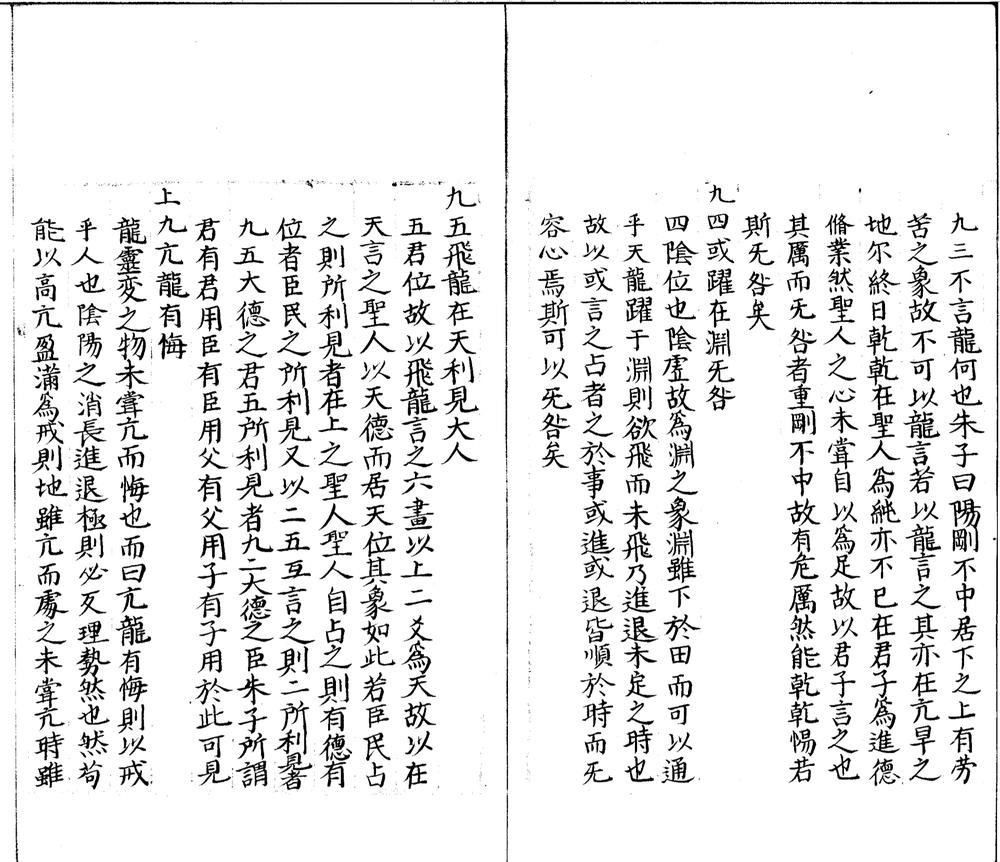 九三不言龍何也朱子曰陽剛不中居下之上有勞
苦之象故不可以龍言若以龍言之其亦在亢旱之
地尔終日乾乾在聖人爲純亦不已在君子爲進德
脩業然聖人之心未甞自以爲足故以君子言之也
其厲而旡咎者重剛不中故有危厲然能乾乾惕若
斯旡咎矣
九四或躍在淵旡咎
四陰位也陰虗故爲淵之象淵雖下於田而可以通
乎天龍躍于淵則欲飛而未飛乃進退未定之時也
故以或言之占者之於事或進或退皆順於時而旡
容心焉斯可以旡咎矣
九五飛龍在天利見大人
五君位故以飛龍言之六畫以上二爻爲天故以在
天言之聖人以天德而居天位其象如此若臣民占
之則所利見者在上之聖人聖人自占之則有德有
位者臣民之所利見又以二五互言之則二所利見者
九五大德之君五所利見者九二大德之臣朱子所謂
君有君用臣有臣用父有父用子有子用於此可見
上九亢龍有悔
龍靈变之物未甞亢而悔也而曰亢龍有悔則以戒
乎人也陰陽之消長進退極則必反理勢然也然苟
能以高亢盈滿爲戒則地雖亢而處之未甞亢時雖